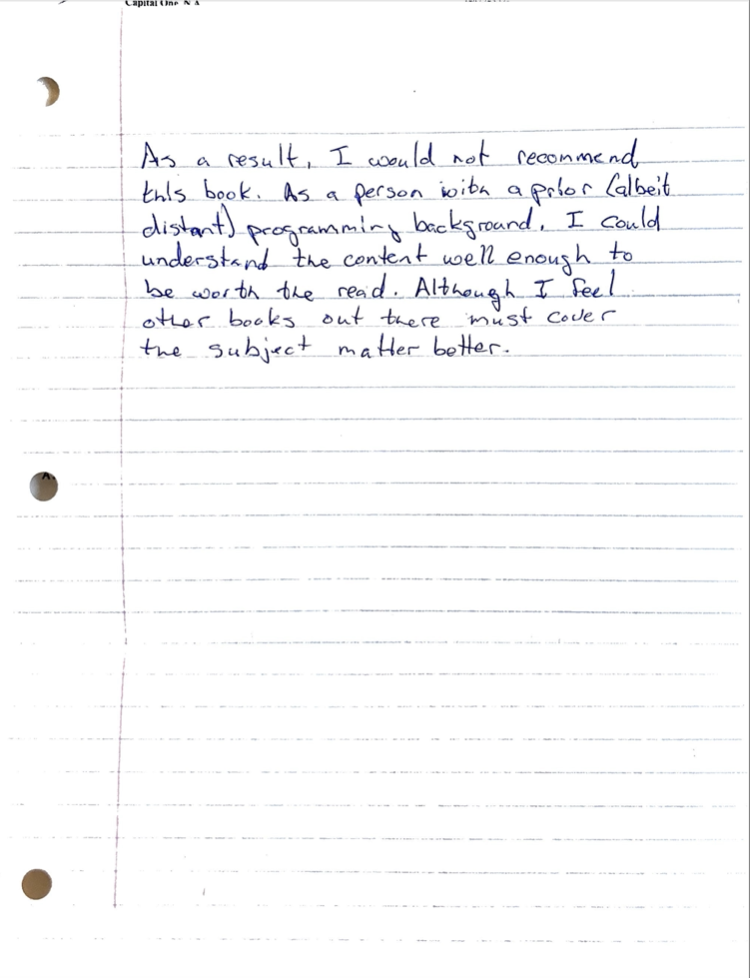 Capital One N A
As a result, I would not recommend
this book. As a person with a prior (albeit
distant) programming background, I could
understand the content well enough to
be worth the read. Although I feel
other books out there must cover
the subject matter better.